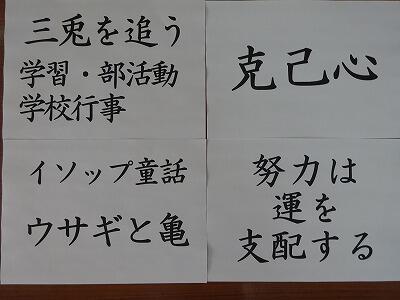 三兎を追う
学習・部活動
学校行事
克己心
イソップ童話
ウサギと亀
努力は
運を
支配する